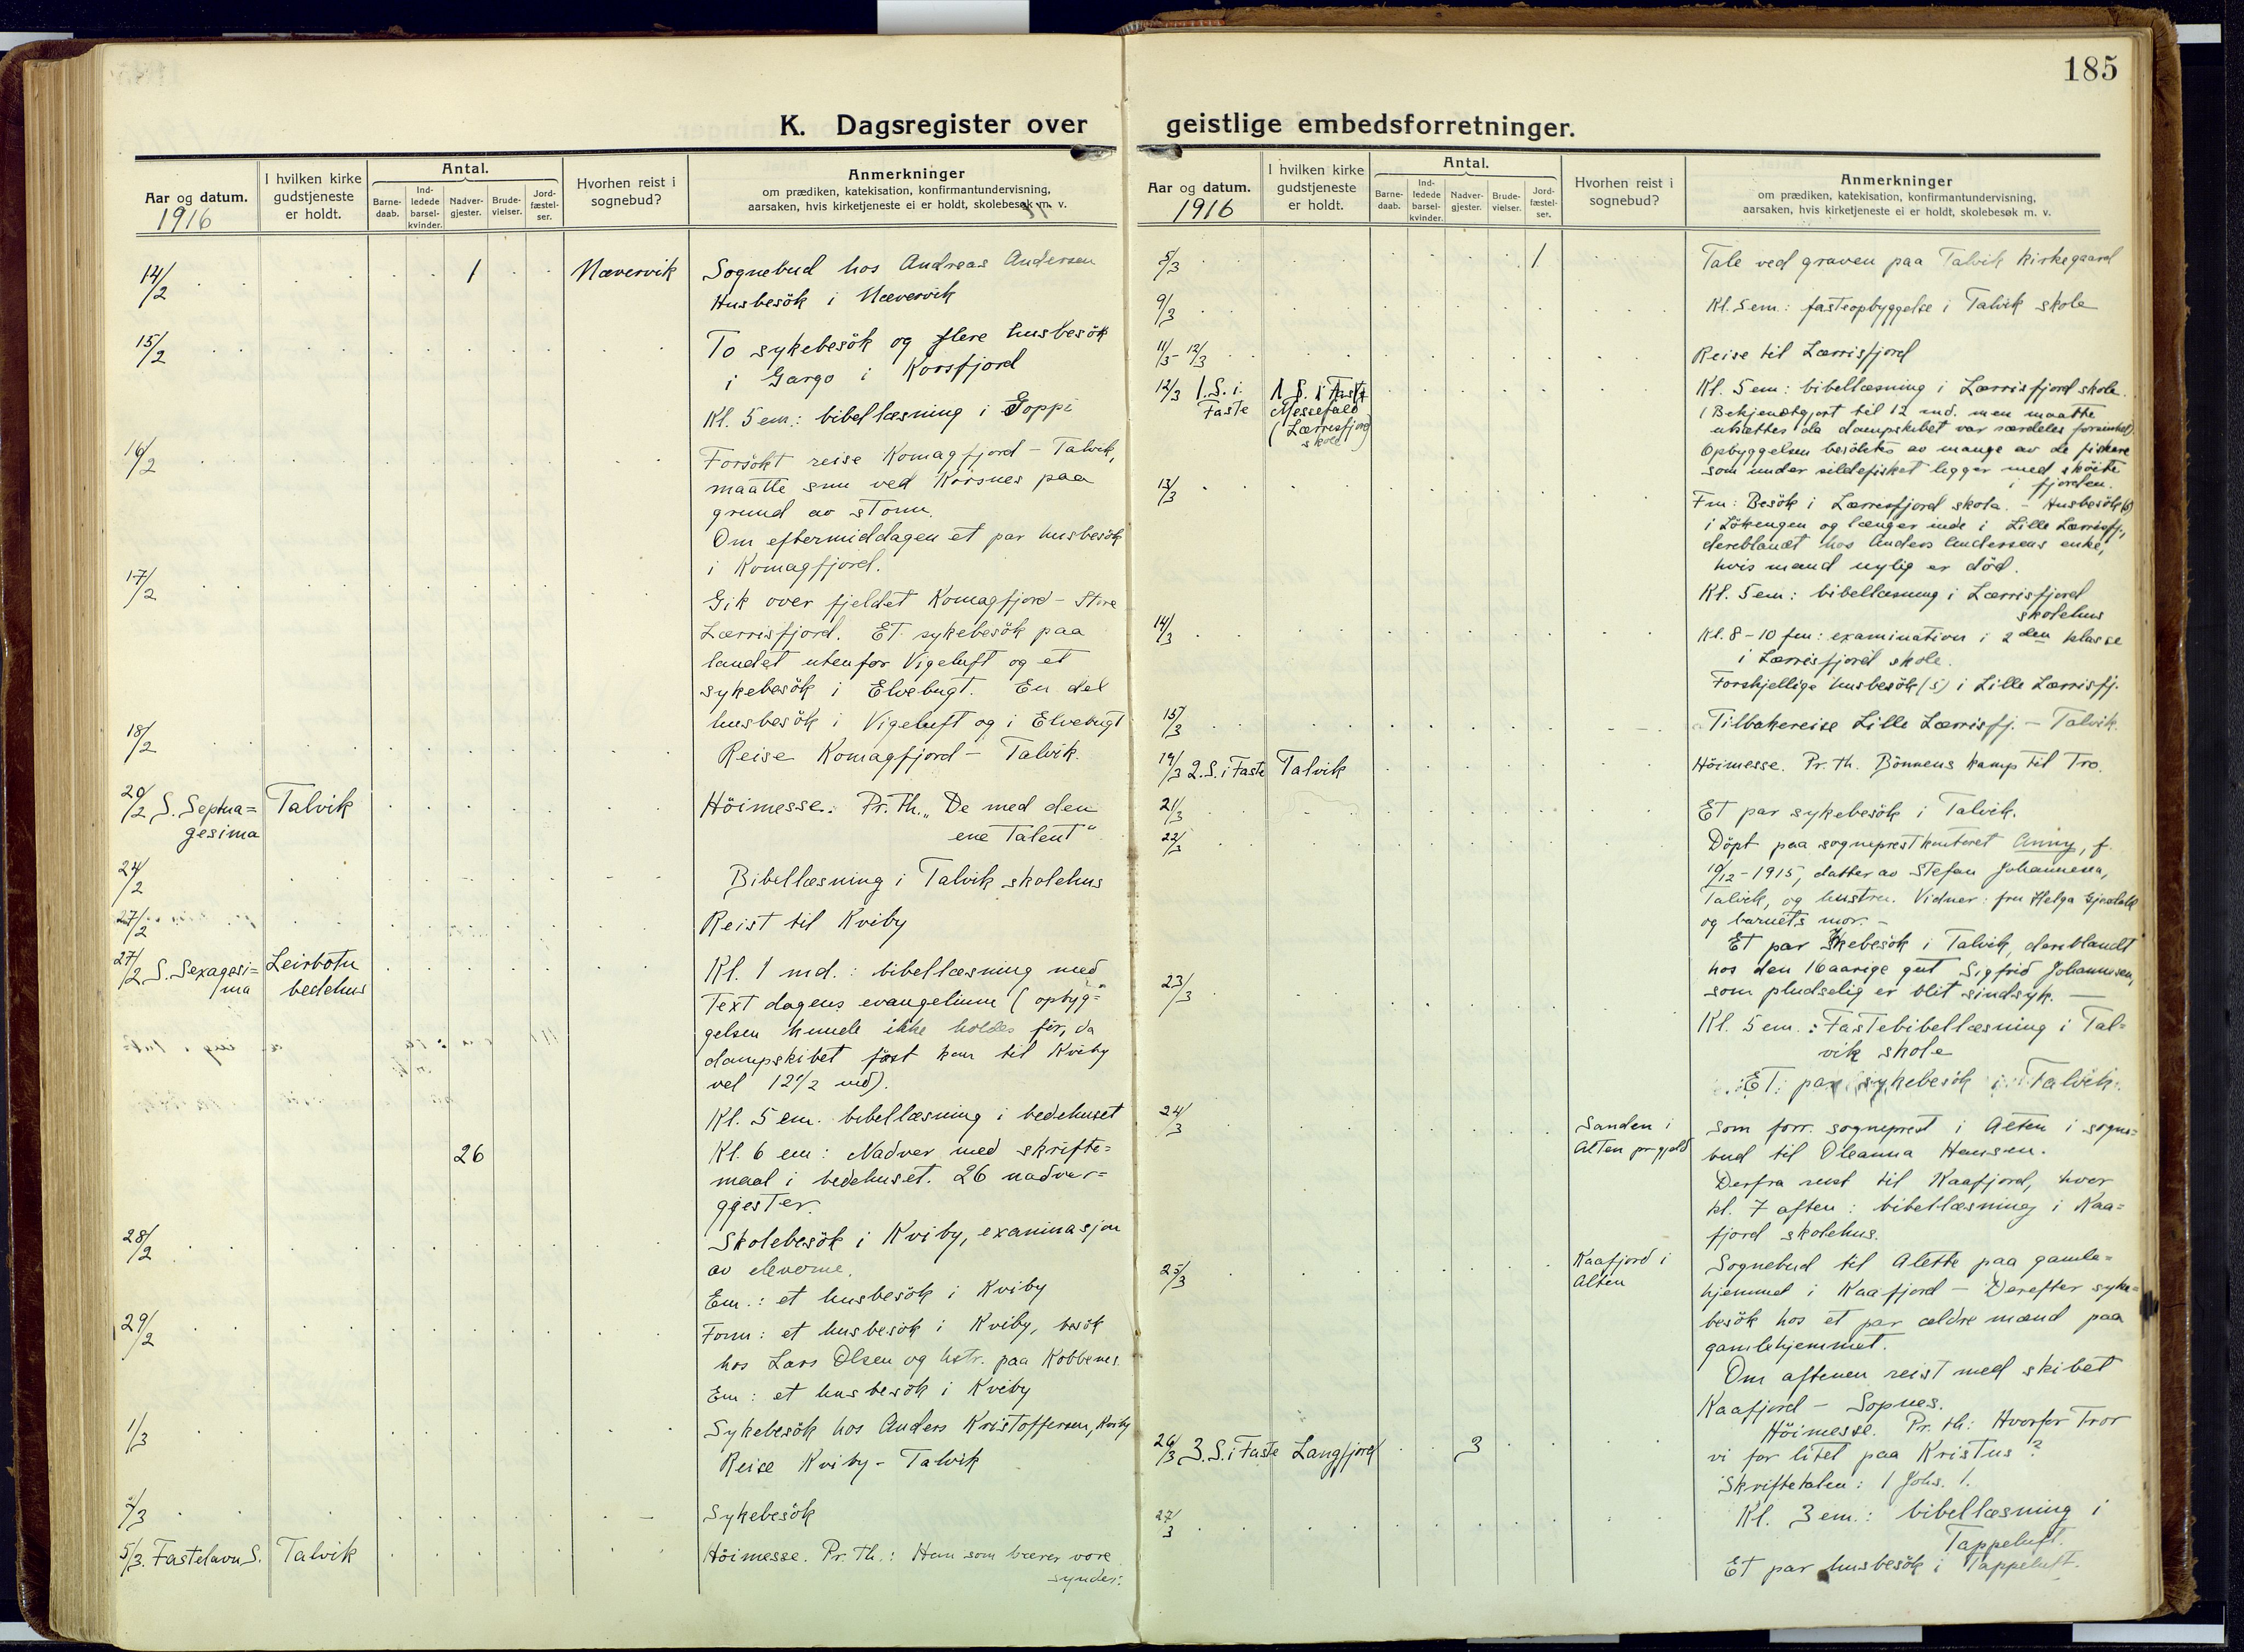 185
K. Dagsregister over geistlige embedsforretninger.
Aar og datum.
1916
I hvilken kirke
gudstjeneste
er holdt.
Antal.
Barne-
daab.
Ind-
ledede
barsel-
kvinder.
Nadver-
gjester.
Brude-
vielser.
Jord-
fæstel-
ser.
Hvorhen reist i
sognebud?
Anmerkninger
om prædiken, katekisation, konfirmantundervisning,
aarsaken, hvis kirketjeneste ei er holdt, skolebesøk m. v.
14/2 1 Nævervik Sognebud hos Andreas Andersen
Husbesök i Nævervik
15/2 To sykebesök og flere husbesök
i Gargo i Korsfjord
Kl. 5 em.: bibellæsning i Goppi
16/2 Forsökt reise Komagfjord - Talvik,
maatte snu ved Korsnes paa
grund av storm.
Om eftermiddagen et par husbesök
i Komagfjord.
17/2 Gik over fjeldet Komagfjord - Store
Lærrisfjord. Et sykebesök paa
landet utenfor Vigeluft og et
sykebesök i Elvebugt. En del
husbesök i Vigeluft og i Elvebugt
18/2 Reise Komagfjord - Talvik.
20/2 S. Septua= Talvik Höimesse: Pr. Th. „De med den
gesima ene Talent“
24/2 Bibellæsning i Talvik skolehus
27/2 Reist til Kviby
27/2 S. Sexagesi= Leirbotn Kl. 1 md.: bibellæsning med
ma bedehus
Text dagens evangelium (opbyg=
gelsen kunde ikke holdes för, da
dampskibet först kom til Kviby
vel 12 1/2 md).
Kl. 5 em. bibellæsning i bedehuset
26 Kl. 6 em: Nadver med skrifte=
maal i bedehuset. 26 nadver=
gjester.
28/2 Skolebesök i Kviby, examinasjon
av eleverne.
Em.: et husbesök i Kviby
29/2 Form: et husbesök i Kviby, besök
hos Lars Olsen og hstr. paa Kobbenes.
Em: et husbesök i Kviby
1/3 Sykebesök hos Anders Kristoffersen, Kviby
Reise Kviby - Talvik
2/3 Sykebesök
5/3. Fastelavn S. Talvik Höimesse. Pr. Th.: Han som bærer vore
synder.
Aar og datum.
1916
I hvilken kirke
gudstjeneste
er holdt.
Antal.
Barne-
daab.
Ind-
ledede
barsel-
kvinder.
Nadver-
gjester.
Brude-
vielser.
Jord-
fæstel-
ser.
Hvorhen reist i
sognebud?
Anmerkninger
om prædiken, katekisation, konfirmantundervisning,
aarsaken, hvis kirketjeneste ei er holdt, skolebesøk m. v.
5/3 1 Tale ved graven paa Talvik kirkegaard
9/3 Kl. 5 em.: fasteopbyggelse i Talvik skole
11/3 - 12/3 Reise til Lærrisfjord
12/3 1. S. i Faste 1 S. i Faste
Messefald
(Lærrisfjord
skole)
Kl. 5 em: bibellæsning i Lærrisfjord skole.
(Bekjendtgjort til 12 md. men maatte
utsættes da dampskibet var særdeles forsinket).
Opbyggelsen besöktes av mange av de fiskere
som under sildefisket ligger med sköite
i fjorden.
13/3 Fm: Besök i Lærrisfjord skole. - Husbesök (6)
i Lökengen og længer inde i Lille Lærrisfj.,
dereblandt hos Anders Andersens enke,
hvis mand nylig er död.
Kl. 5 em: bibellæsning i Lærrisfjord
skolehus
14/3 Kl. 8-10 fm: examination i 2den klasse
i Lærrisfjord skole.
Forskjellige husbesök (5) i Lille Lærrisfj.
15/3 Tilbakereise Lille Lærrisfj. - Talvik.
19/3 2. S. i Faste Talvik Höimesse. Pr. Th. Bönnens kamp til Tro.
21/3 Et par sykebesök i Talvik.
22/3 Döpt paa sogneprestkontoret Anny, f.
19/12 - 1915, datter av Stefan Johannesen,
Talvik, og hustru. Vidner: fru Helga
og barnets mor. -
Et par sykebesök i Talvik, dereblandt
hos den 16 aarige gut Sigfrid Johannesen,
som pludselig er blit sindsyk. -
23/3 Kl. 5 em.: Fastebibellæsning i Tal=
vik skole
Et par sykebesök i Talvik.
24/3 Sanden i
Alten pr.gjeld
Som forr. sogneprest i Alten i sogne=
bud til Oleanna Hansen.
Derfra reist til Kaafjord, hvor
kl. 7 aften: bibellæsning i Kaa=
fjord skolehus.
25/3 Kaafjord i
Alten
Sognebud til Alette paa gamle=
hjemmet i Kaafjord - Derefter syke=
besök hos et par ældre mænd paa
gamlehjemmet.
Om aftenen reist med skibet
Kaafjord - Sopnes.
26/3 3. S. i Faste Langfjord 3 Höimesse. Pr. th: Hvorfor Tror
vi for litet paa Kristus?
Skriftetalen: 1 Johs. 1.
27/3 Kl. 3 em.: bibellæsning i
Tappeluft.
Et par husbesök i Tappeluft.